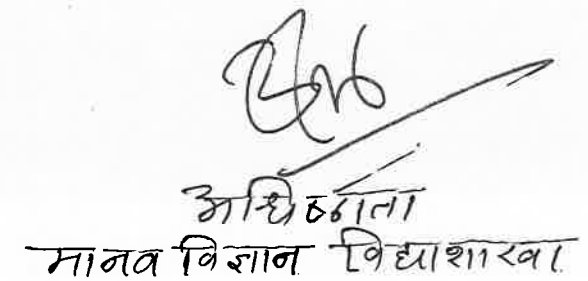 अधिष्ठाता
मानव विज्ञान विद्याशाखा